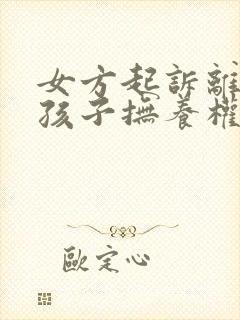 女方起訴離
孩子撫養權
歐定心